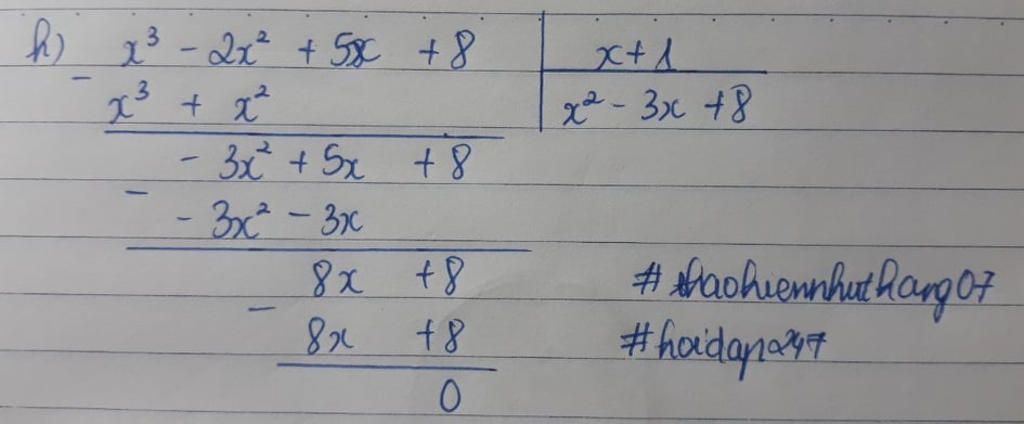 h) x³ - 2x² + 5x + 8 | x + 1
- x³ + x² | x² - 3x + 8
- 3x² + 5x + 8
- - 3x² - 3x
8x + 8
- 8x + 8
0
#thaohiennhuthang07
#hoidap247